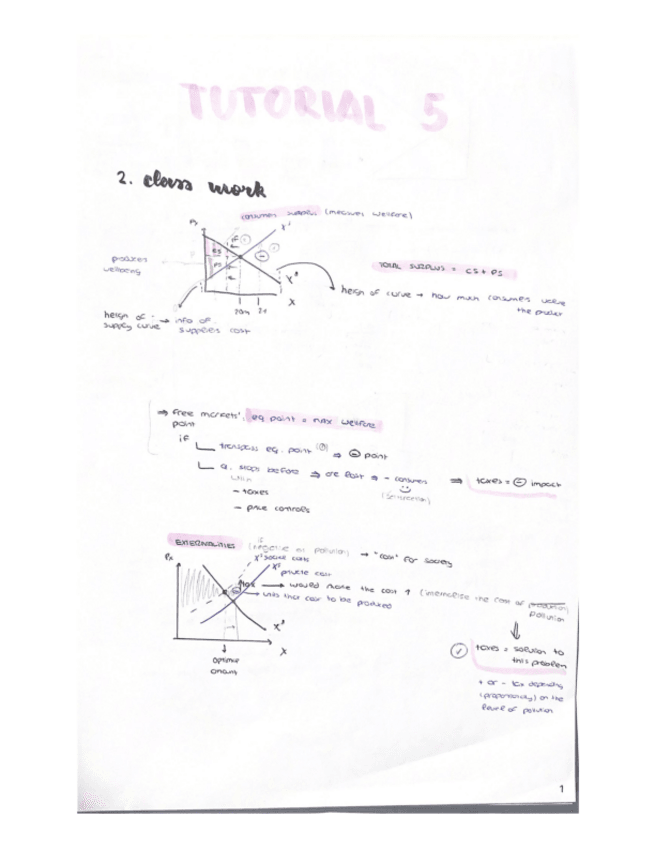 TUTORIAL 5
2. class work
consumer surplus (measures welfare)
Px
xˢ
if
CS
PS
producers
wellbeing
TOTAL SURPLUS = CS + PS
xᵈ
x
heigh of curve → how much consumers value
the product
20m
heigh of → info of
supply curve suppliers cost
⇒ free markets' eq point = max welfare
point
if
transpass eq. point ⇒ ⊖ point
Q. stops before ⇒ are lost ⇒ - consumers
⇒ taxes = ⊖ impact
with
(satisfaction)
- taxes
- price controls
EXTERNALITIES (negative ex pollution) → "cost" for society
Px
xˢ social costs
xˢ private cost
tax → would make the cost ↑ (internalise the cost of production
pollution
→ units that cost to be produced
xᵈ
x
optimal
amount
taxes = solution to
this problem
+ or - tax depending
(proportionally) on the
level of pollution
1